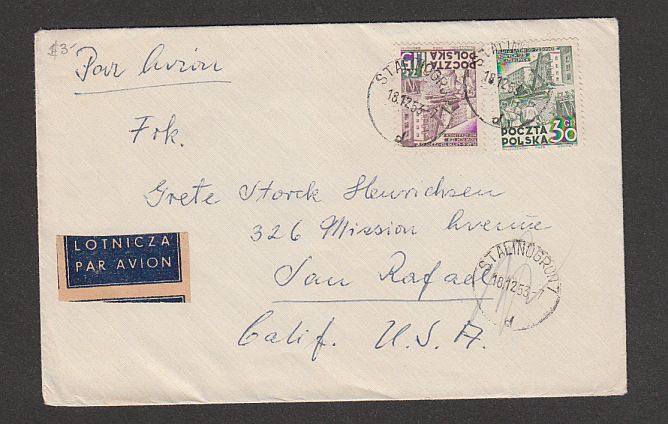 $3-
Par Avion
STALINOGRÓD 1
18.12.53
d
STALINOGRÓD
18.12.53
d
45
POCZTA
POLSKA
POCZTA 30
POLSKA
Frk.
Grete Storck Henrichsen
326 Mission Avenue
San Rafael
Calif. U. S. A.
LOTNICZA
PAR AVION
STALINOGRÓD 1
18.12.53-7
d